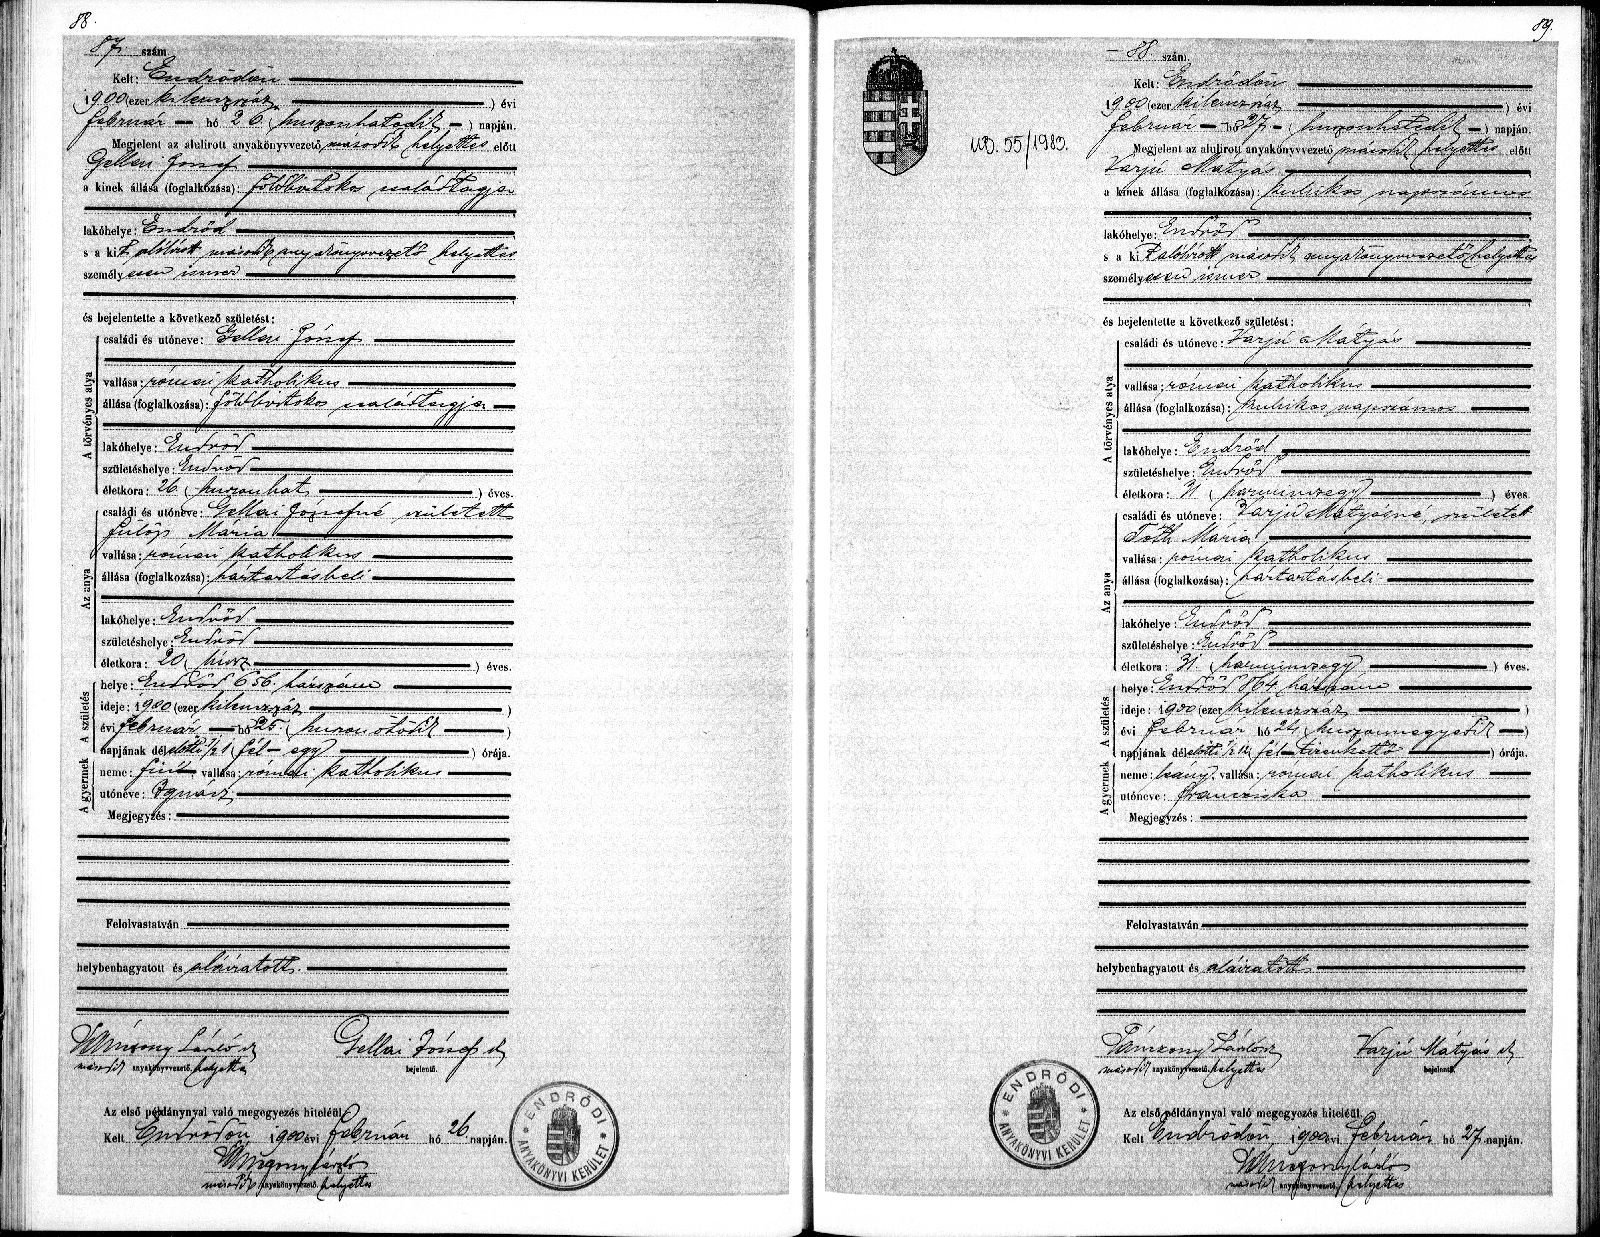 88.
87. szám
Kelt: Endrődön
1900 (ezer kilenczszáz ) évi
február hó 26 (huszonhatodik ) napján.
Megjelent az alulirott anyakönyvvezető második helyettes előtt
Gellai József
a kinek állása (foglalkozása): földbirtokos családtagja
lakóhelye: Endrőd
s a kit alólirott második anyakönyvvezető helyettes
személyesen ismer
és bejelentette a következő születést:
A törvényes atya
családi és utóneve: Gellai József
vallása: római katholikus
állása (foglalkozása): földbirtokos családtagja
lakóhelye: Endrőd
születéshelye: Endrőd
életkora: 26 (huszonhat ) éves.
Az anya
családi és utóneve: Gellai Józsefné született
Fülöp Mária
vallása: római katholikus
állása (foglalkozása): háztartásbeli
lakóhelye: Endrőd
születéshelye: Endrőd
életkora: 20 (húsz ) éves.
A születés
helye: Endrőd 656. házszám
ideje: 1900 (ezer kilenczszáz )
évi február hó 25. (huszonötödik )
napjának délelőtti 1/2 1 (fél egy ) órája.
A gyermek
neme: fiú vallása: római katholikus
utóneve: Ignácz
Megjegyzés:
Felolvastatván
helybenhagyatott és aláiratott.
Gellai József
második anyakönyvvezető. helyettes bejelentő.
Az első példánynyal való megegyezés hiteléül.
Kelt Endrődön 1900 évi február hó 26. napján.
második anyakönyvvezető. helyettes
ENDRŐDI ANYAKÖNYVI KERÜLET
89.
55/1980.
88 szám.
Kelt: Endrődön
1900 (ezer kilenczszáz ) évi
február hó 27 (huszonhetedik ) napján.
Megjelent az alulirott anyakönyvvezető második helyettes előtt
Varjú Mátyás
a kinek állása (foglalkozása): kubikos napszámos
lakóhelye: Endrőd
s a kit alólirott második anyakönyvvezető helyettes
személyesen ismer
és bejelentette a következő születést:
A törvényes atya
családi és utóneve: Varjú Mátyás
vallása: római katholikus
állása (foglalkozása): kubikos napszámos
lakóhelye: Endrőd
születéshelye: Endrőd
életkora: 31 (harminczegy ) éves.
Az anya
családi és utóneve: Varjú Mátyásné, született
Tóth Mária
vallása: római katholikus
állása (foglalkozása): háztartásbeli
lakóhelye: Endrőd
születéshelye: Endrőd
életkora: 31. (harminczegy ) éves.
A születés
helye: Endrőd 864 házszám
ideje: 1900 (ezer kilenczszáz )
évi február hó 24 (huszonnegyedik )
napjának délelőtti 1/2 12 (fél tizenkettő ) órája.
A gyermek
neme: leány. vallása: római katholikus
utóneve: Francziska
Megjegyzés:
Felolvastatván
helybenhagyatott és aláiratott
Varjú Mátyás
második anyakönyvvezető. helyettes bejelentő.
Az első példánynyal való megegyezés hiteléül.
Kelt Endrődön 1900 évi február hó 27. napján.
második anyakönyvvezető. helyettes
ENDRŐDI ANYAKÖNYVI KERÜLET